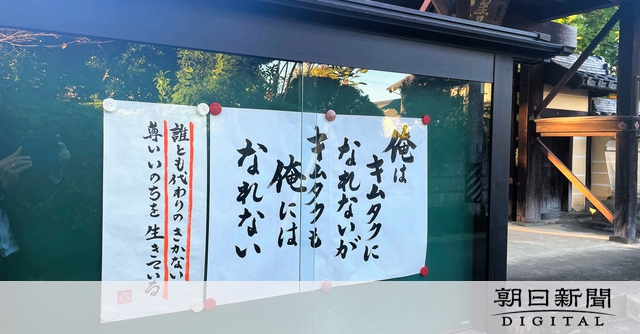 俺は
キムタクに
なれないが
キムタクも
俺には
なれない
誰とも代わりのきかない
尊いいのちを生きている
朝日新聞
DIGITAL